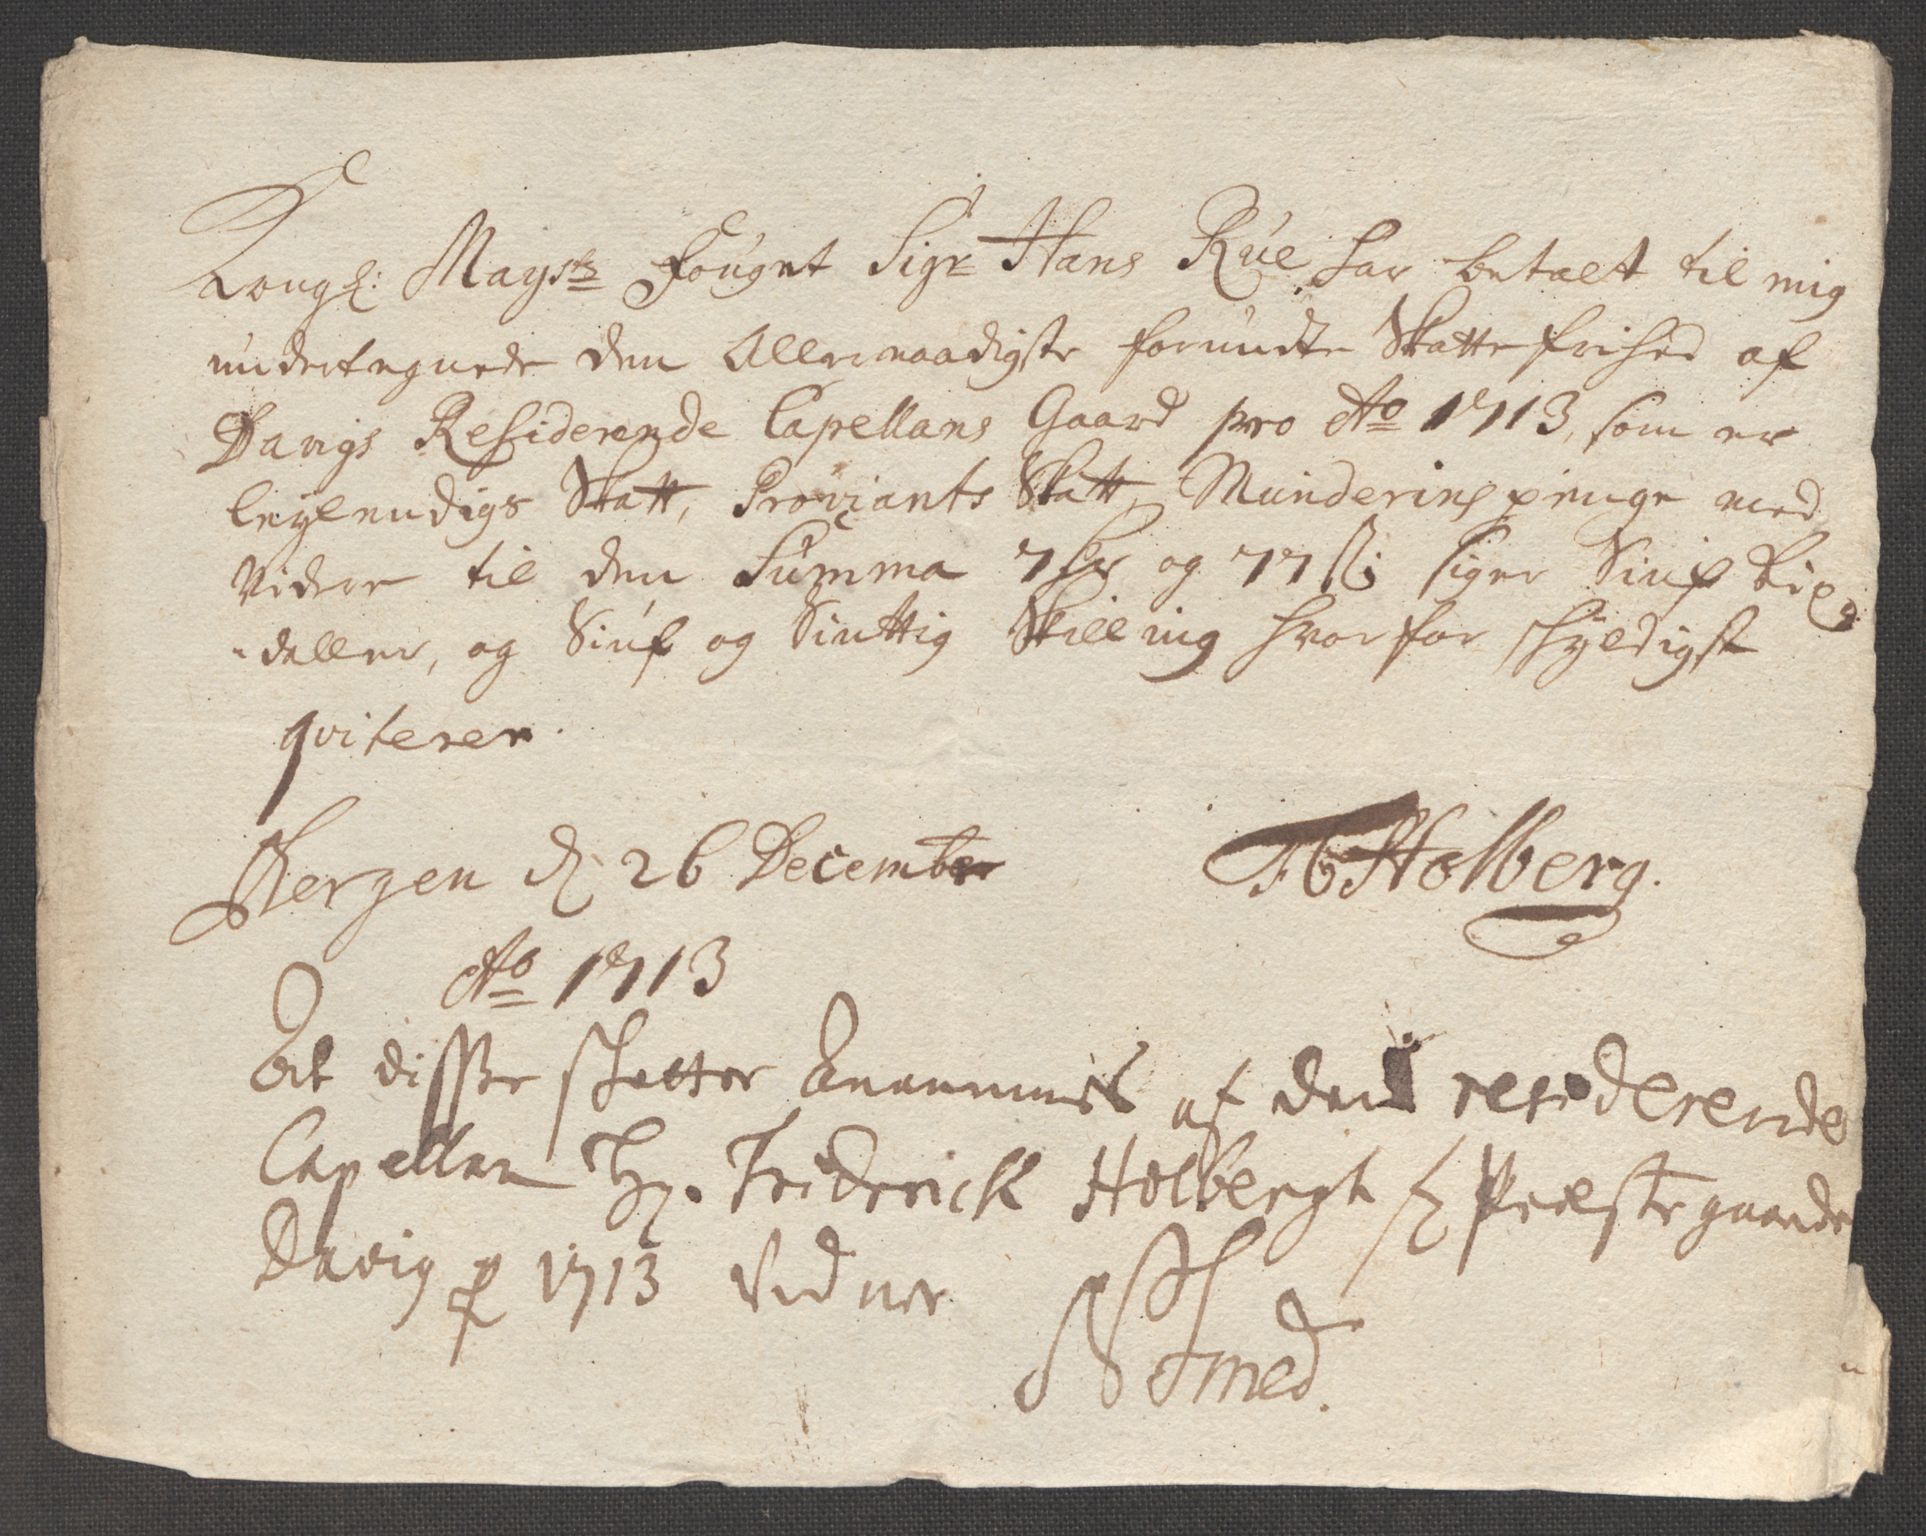 Kongl: Maysts Fouget Sigr Hans Rue har betalt til mig
undertegnede den Allernaadigste forundte Skatte frihed af
Davigs Residerende Capellans Gaard pro Ao 1713, som er
leylendigs Skatt, Proviants Skatt, Munderings penge med
Videre til den Summa 7 hr og 77 ß; siger Siuf Rix
-daller, og Siuf og Siuttig Skilling hvorfor skyldigst
qviterer.
Bergen d 26 December
Holberg.
Ao 1713
At disse skatter Annammes af den residerende
Capellan Hr. Friderick Holbergh f Præste gaarde
Davig p 1713 Vidner
Smed.